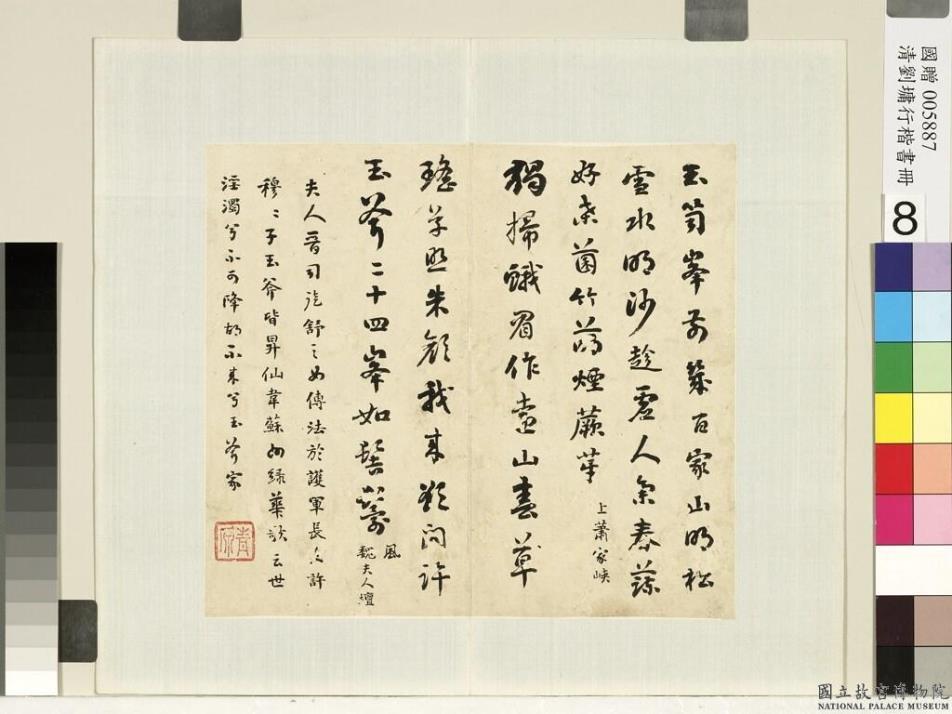 玉笥峯前幾百家山明松
雪水明沙趁虛人集春蔬
好桑菌竹萌煙蕨芽
上蕭家峽
獨掃蛾眉作遠山春草
瑤草照朱顏我來欲問許
玉斧二十四峯如髻鬟
風
魏夫人壇
夫人晉司徒舒之女傳法於護軍長史許
穆穆子玉斧皆昇仙韋蘇州綠華歌云世
淫濁兮不可降胡不來兮玉斧家
國贈 005887
清劉墉行楷書冊
8
國立故宮博物院
NATIONAL PALACE MUSEUM